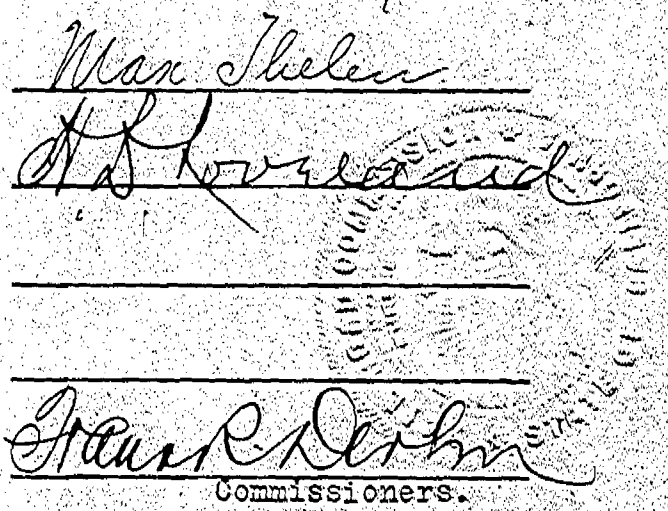 Max Thelen
H D Loveland
Frank R. Devlin
Commissioners.
STATE OF